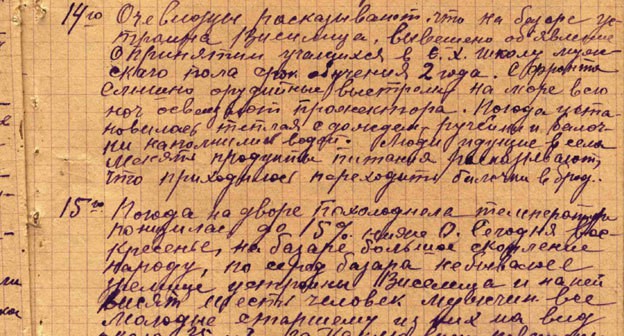 14го Очевидцы рассказывают. что на базаре ус-
троина висилица, вывешено обявление
о принятии учащихся в С.Х. школу муж-
ского пола срок обучения 2 года. С фронта
слышно орудийные выстрелы на море всю
ноч освещают прожектора. Погода уста-
новилась теплая с дождем, ручейки и балоч-
ки наполнились водой. Люди идущие в села
менять продукты питания рассказывают,
что приходилось переходить балочки в брод.
15го Погода на дворе похолоднела температура
понизилась до 15% ниже 0. Сегодня вос-
кресенье, на базаре большое скопление
народу, по серед базара небывалое
зрелище устроины висилица и на ней
висят шесть человек мужчин все
молодые старшему из них на вид